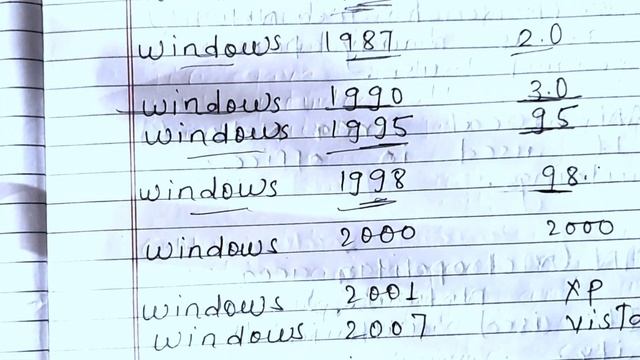 windows 1987 2.0
windows 1990 3.0
windows 1995 95
windows 1998 98.
windows 2000 2000
windows 2001 XP
windows 2007 vista